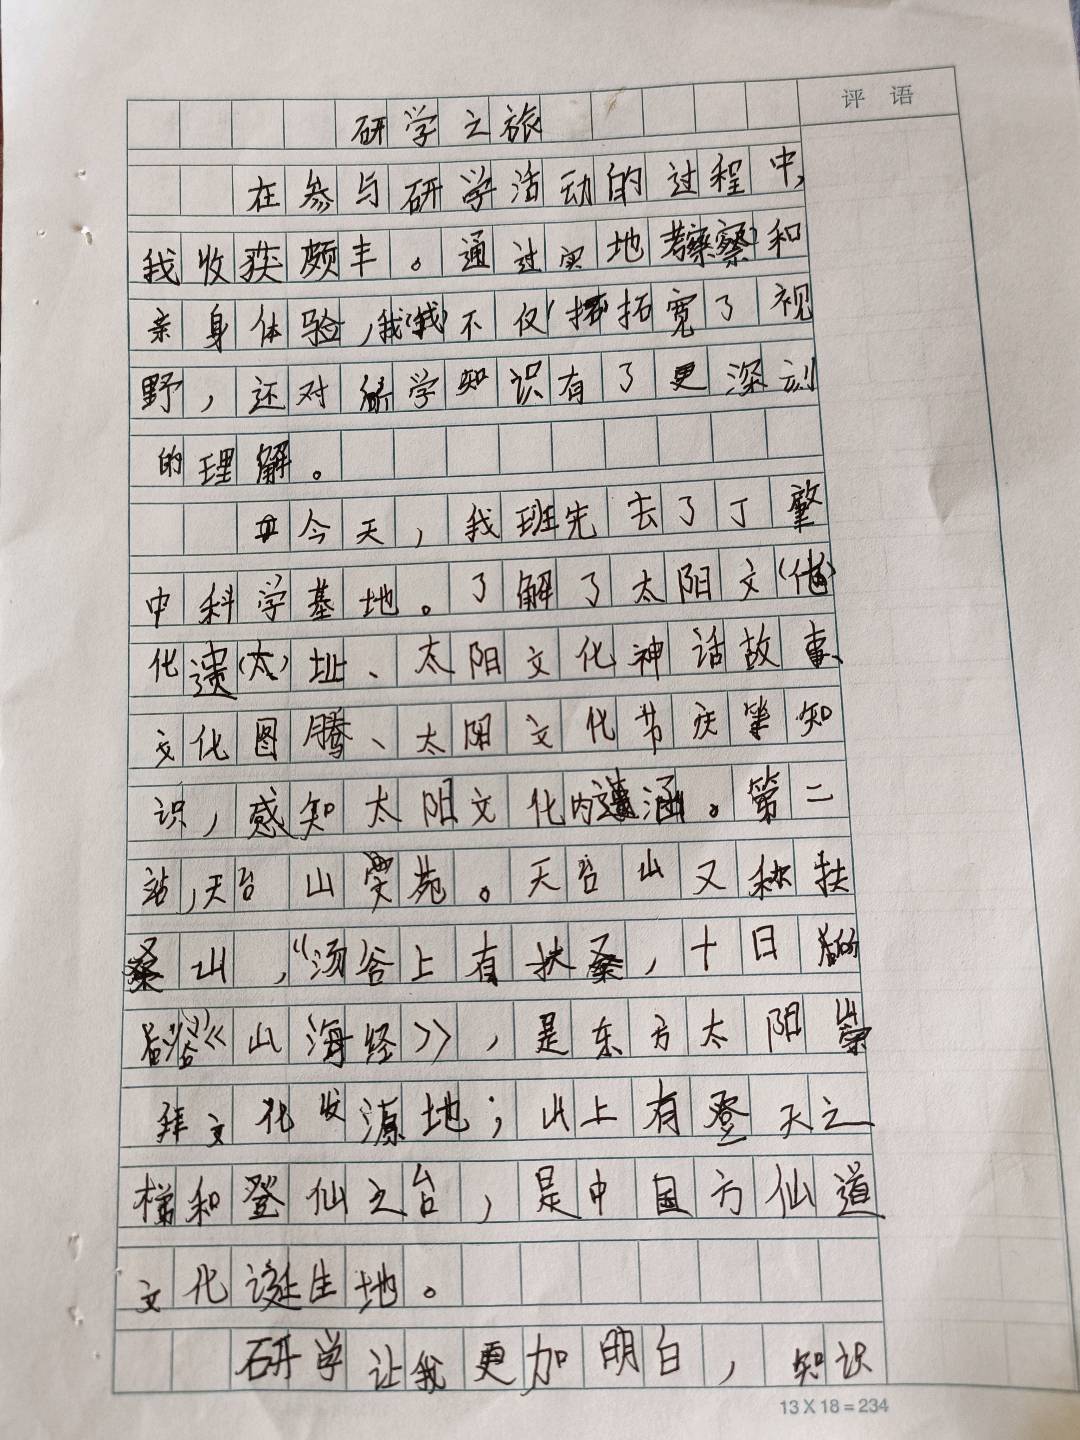 评 语
研学之旅
在参与研学活动的过程中,
我收获颇丰。通过实地考察(察)和
亲身体验,我(我)不仅(拓)拓宽了视
野,还对研学知识有了更深刻
的理解。
今天,我班先去了丁肇
中科学基地。了解了太阳文
化遗(太)址、太阳文化神话故事、
文化图腾、太阳文化节庆等知
识,感知太阳文化内涵。第二
站,天台山景苑。天台山又称扶
桑山,“汤谷上有扶桑,十日所
浴”《山海经》,是东方太阳崇
拜文化发源地;山上有登天之
梯和登仙之台,是中国方仙道
文化诞生地。
研学让我更加明白,知识
13 X 18 = 234